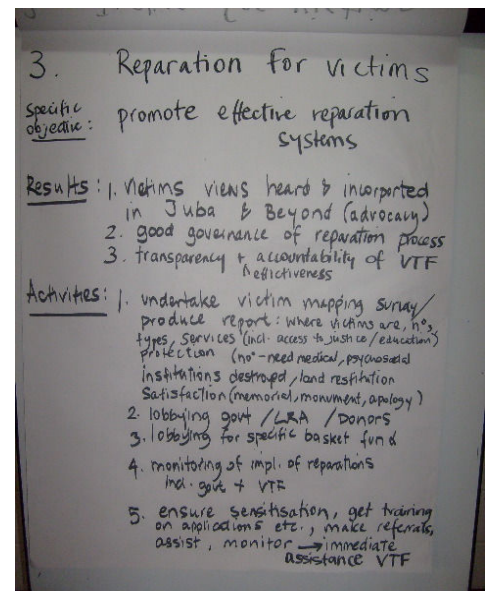 3. Reparation for victims
Specific
objective: promote effective reparation
systems
Results: 1. Victims views heard & incorported
in Juba & Beyond (advocacy)
2. good governance of reparation process
3. transparency + accountability of VTF
& effectiveness
Activities: 1. undertake victim mapping survey/
produce report: where victims are, nos,
types, services (incl. access to justice/education)
protection (no - need medical, psychosocial
institutions destroyed, land restitution
Satisfaction (memorial, monument, apology)
2. lobbying govt /LRA /Donors
3. lobbying for specific basket fund
4. monitoring of impl. of reparations
incl. govt + VTF
5. ensure sensitisation, get training
on applications etc., make referrals,
assist, monitor → immediate
assistance VTF